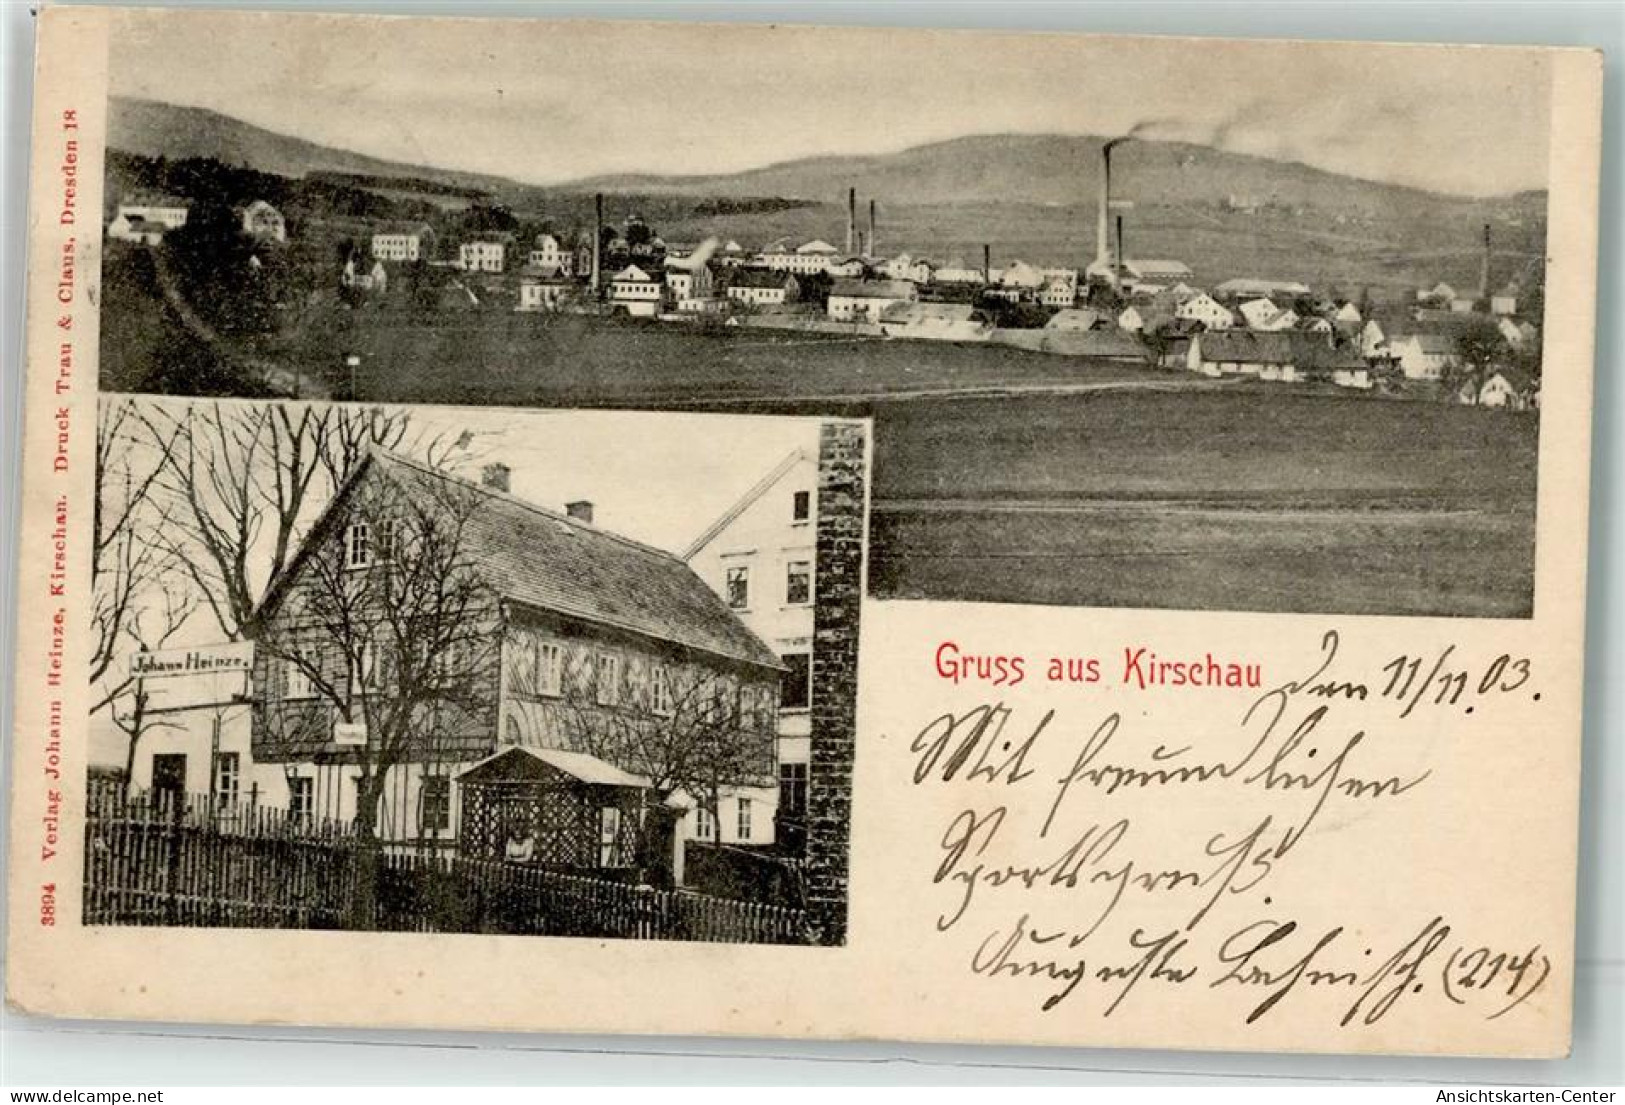 3894 Verlag Johann Heinze, Kirschau. Druck Trau & Claus, Dresden 18
Johann Heinze.
Gruss aus Kirschau
Den 11/11.03.
Mit freundlichen
Sportsgruß.
Auguste Lehnisch. (214)
delcampe.net
Ansichtskarten-Center